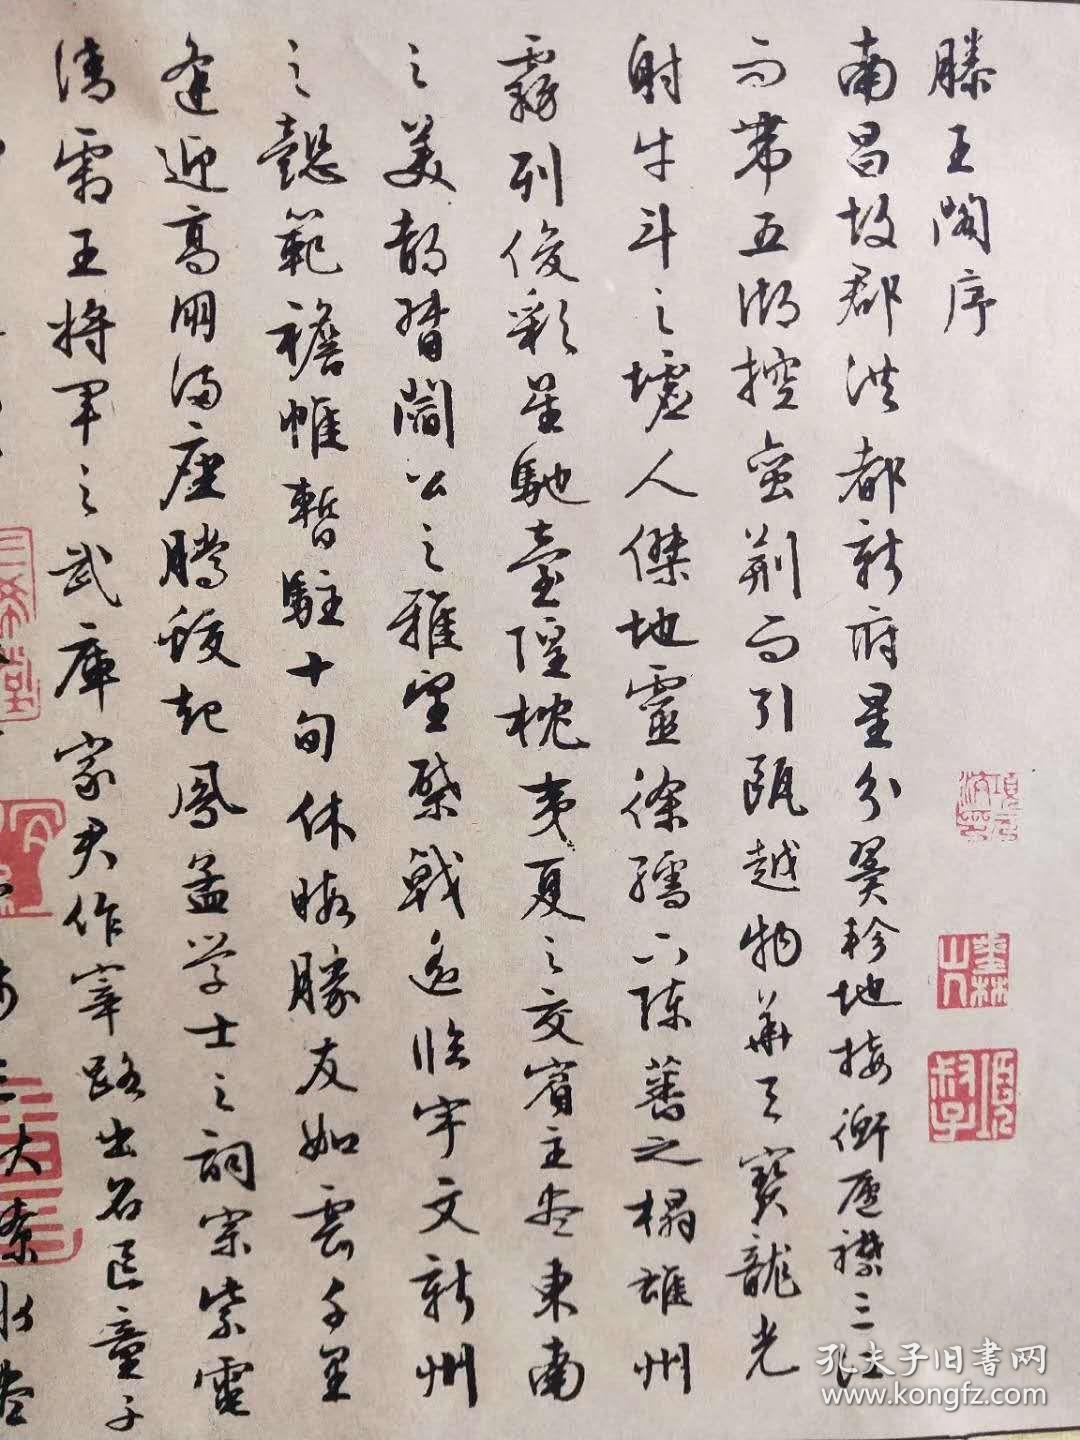 滕王閣序
南昌故郡洪都新府星分翼軫地接衡廬襟三江
而帶五湖控蛮荆而引甌越物華天寳龍光
射牛斗之墟人傑地靈徐孺下陳蕃之榻雄州
霧列俊彩星馳臺隍枕夷夏之交賓主盡東南
之美都督閻公之雅望棨戟遥臨宇文新州
之懿範襜帷暫駐十旬休暇勝友如雲千里
逢迎高朋滿座騰蛟起鳳孟学士之詞宗紫電
清霜王將軍之武庫家君作宰路出名區童子
潦水盡
三希堂
孔夫子旧書网
www.kongfz.com